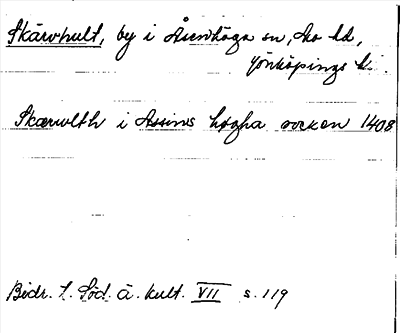 Skärvhult, by i Åsenhöga sn, Mo hd,
Jönköpings l.
Skærwlth i Assins høgha socken 1408
Bidr. t. Söd. ä. kult. VII s. 119